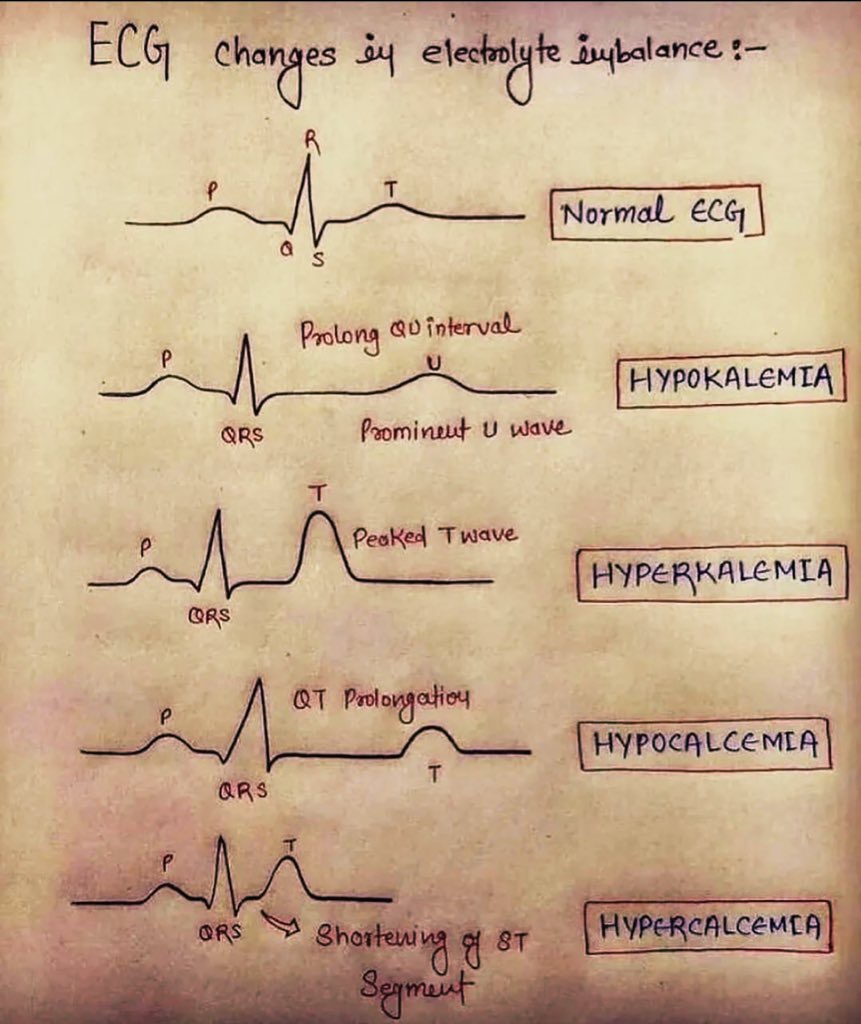 ECG changes in electrolyte imbalance :-
R
P
T
Normal ECG
Q
S
Prolong QU interval
P
U
HYPOKALEMIA
QRS
Prominent U wave
T
P
Peaked T wave
HYPERKALEMIA
QRS
QT Prolongation
P
HYPOCALCEMIA
T
QRS
P
T
QRS
Shortening of ST
Segment
HYPERCALCEMIA